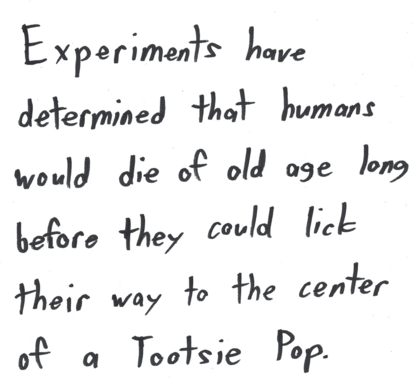 Experiments have
determined that humans
would die of old age long
before they could lick
their way to the center
of a Tootsie Pop.